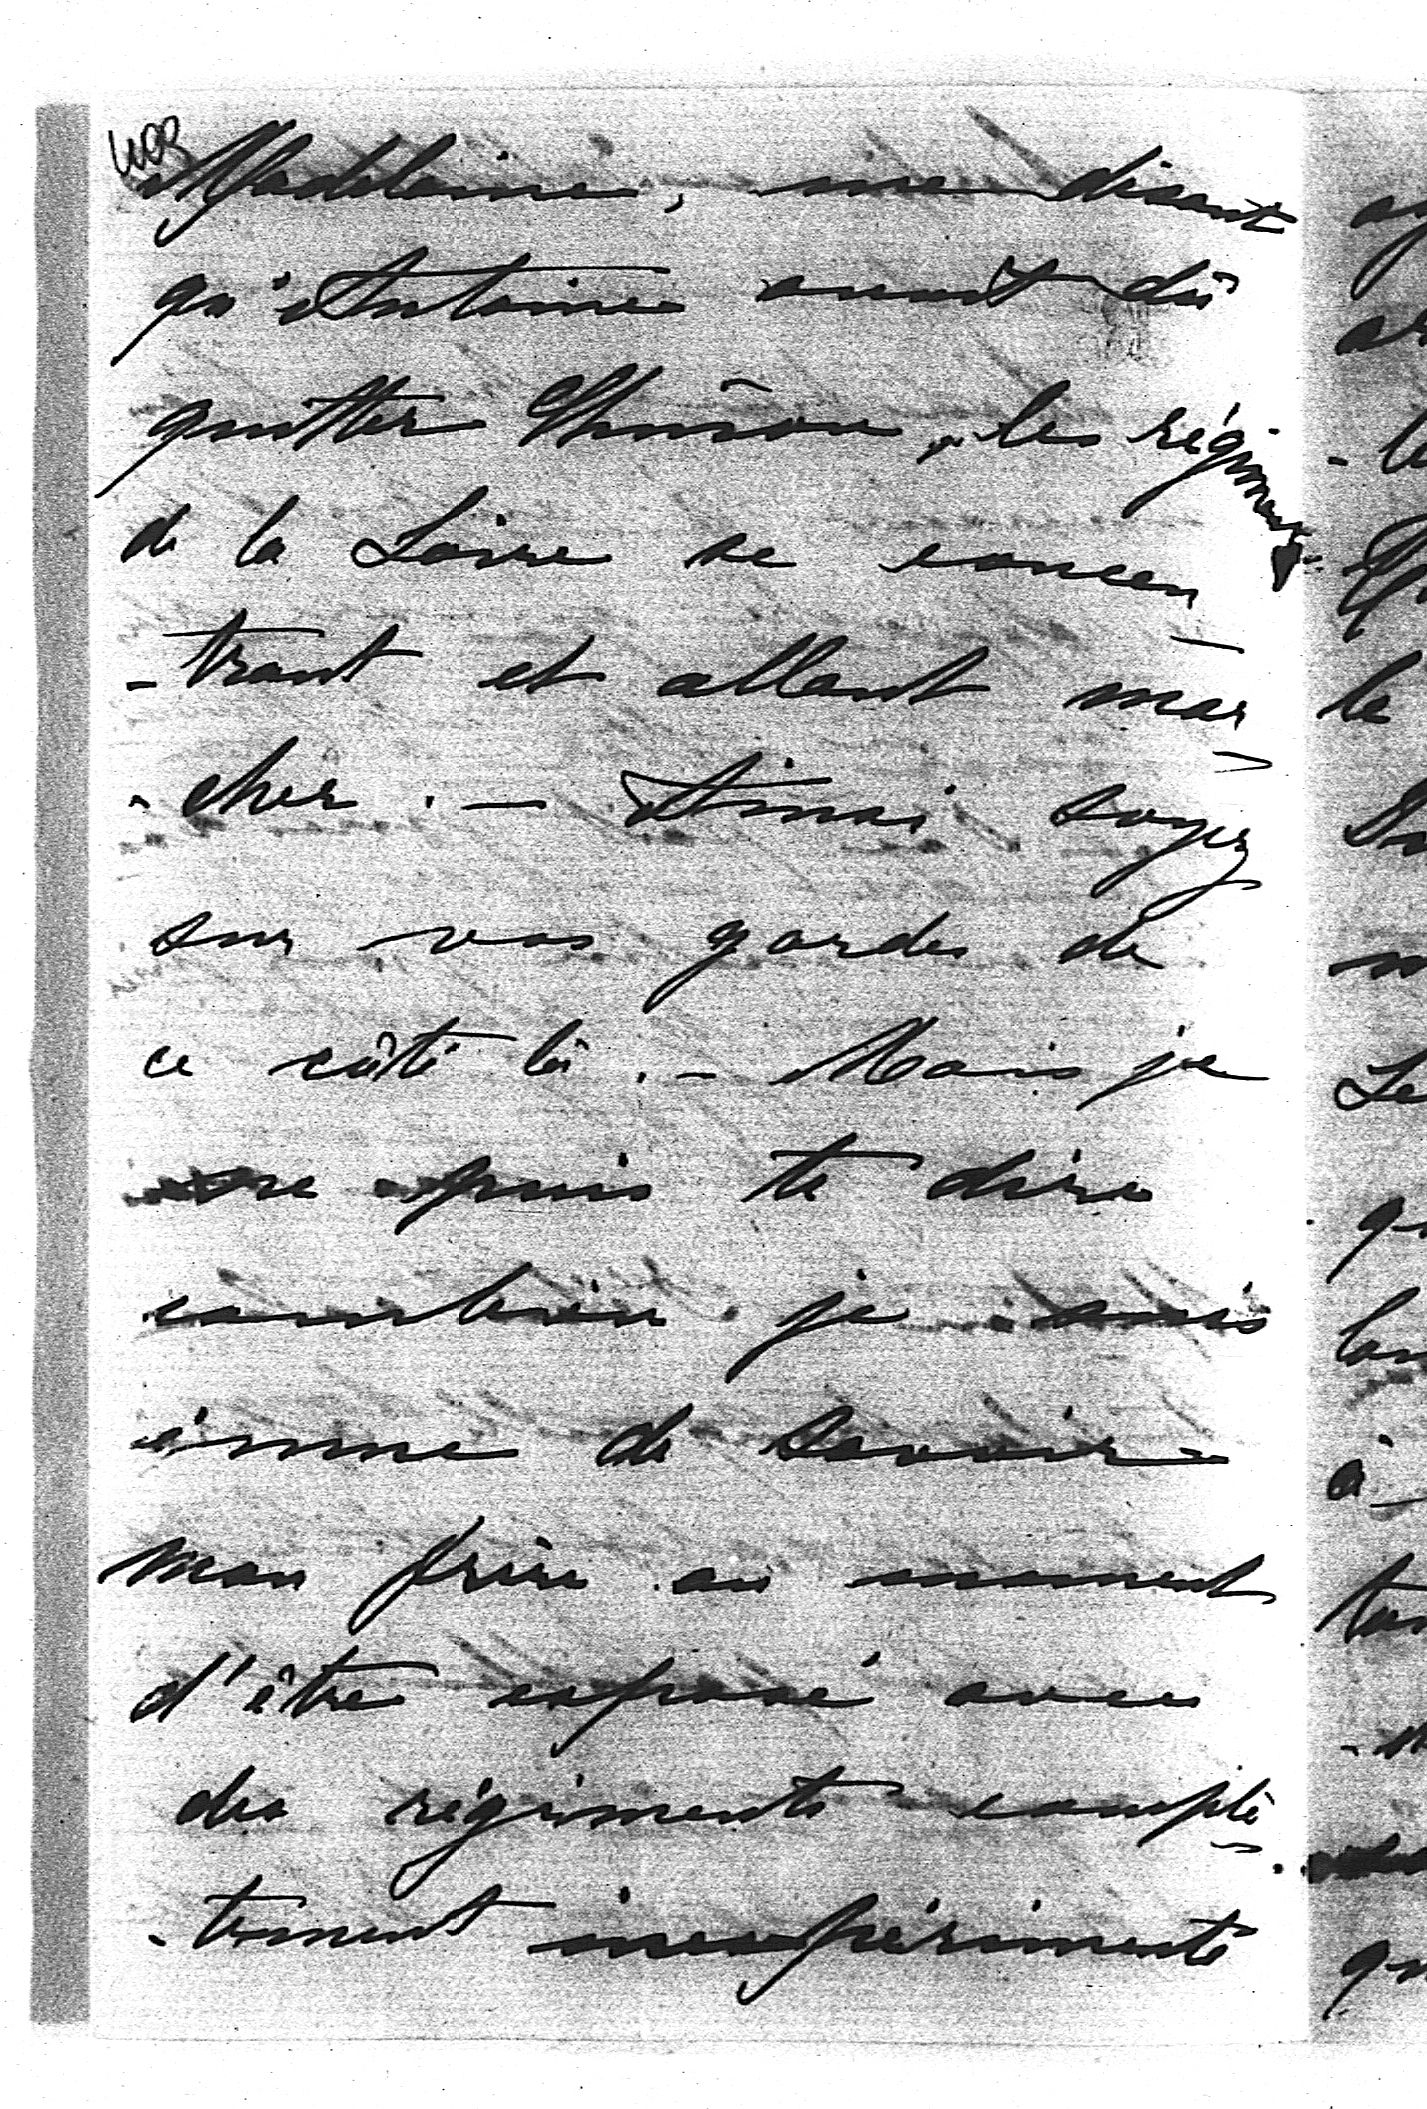 Madeleine, me disant
qu'Antoine avait dû
quitter les régiments
de la Loire se concen
-trant et allant mar
-cher . — Ainsi soyez
sur vos gardes de
ce côté là . — Mais je
ne puis te dire
combien je suis
émue de savoir
mon frère au moment
d'être exposé avec
des régiments complè
-tement inexpérimentés